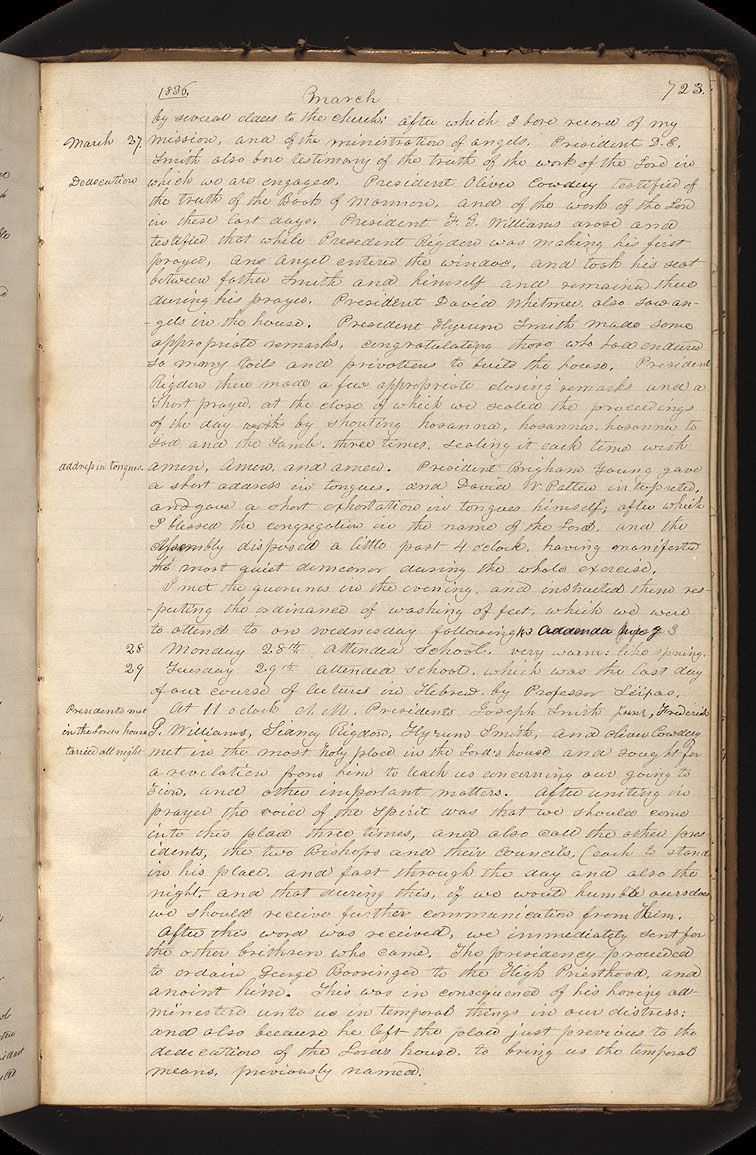 1836. March 723.
by several elders to the church: after which I bore record of my
March 27 mission, and of the ministration of angels. President D. C.
Smith also bore testimony of the truth of the work of the Lord in
Dedication which we are engaged. President Oliver Cowdery testified of
the truth of the Book of Mormon, and of the work of the Lord
in these last days. President F. G. Williams arose and
testified that while President Rigdon was making his first
prayer, an angel entered the window, and took his seat
between father Smith and himself and remained there
during his prayer. President David Whitmer also saw an-
-gels in the house. President Hyrum Smith made some
appropriate remarks, congratulating those who had endured
so many toils and privations to build the house. President
Rigdon then made a few appropriate closing remarks and a
short prayer, at the close of which we sealed the proceedings
of the day by shouting hosanna, hosanna, hosanna to
God and the Lamb, three times, sealing it each time with
address in tongues. amen, amen, and amen. President Brigham Young gave
a short address in tongues, and David W. Patten interpreted,
and gave a short exhortation in tongues himself; after which
I blessed the congregation in the name of the Lord, and the
Assembly dispersed a little past 4 o'clock, having manifested
the most quiet demeanor during the whole exercise.
I met the quorums in the evening, and instructed them res-
-pecting the ordinance of washing of feet, which we were
to attend to on wednesday following, addenda page 3
28 Monday 28th. Attended School. very warm: like spring.
29 Tuesday 29th attended school, which was the last day
of our course of lectures in Hebrew, by Professor Seixas.
Presidents met At 11 o'clock A. M. Presidents Joseph Smith junr, Frederick
in the Lord's house G. Williams, Sidney Rigdon, Hyrum Smith, and Oliver Cowdery
tarried all night met in the most holy place in the Lord's house and sought for
a revelation from him to teach us concerning our going to
Zion, and other important matters. After uniting in
prayer the voice of the Spirit was that we should come
into this place three times, and also call the other pres-
idents, the two Bishops and their Councils, (each to stand
in his place, and fast through the day and also the
night and that during this, if we would humble ourselves
we should receive further communication from Him.
After this word was received, we immediately sent for
the other brethren who came. The presidency proceeded
to ordain George Boosinger to the High Priesthood, and
anoint him. This was in consequence of his having ad-
ministered unto us in temporal things in our distress;
and also because he left the place just previous to the
dedication of the Lord's house, to bring us the temporal
means, previously named.